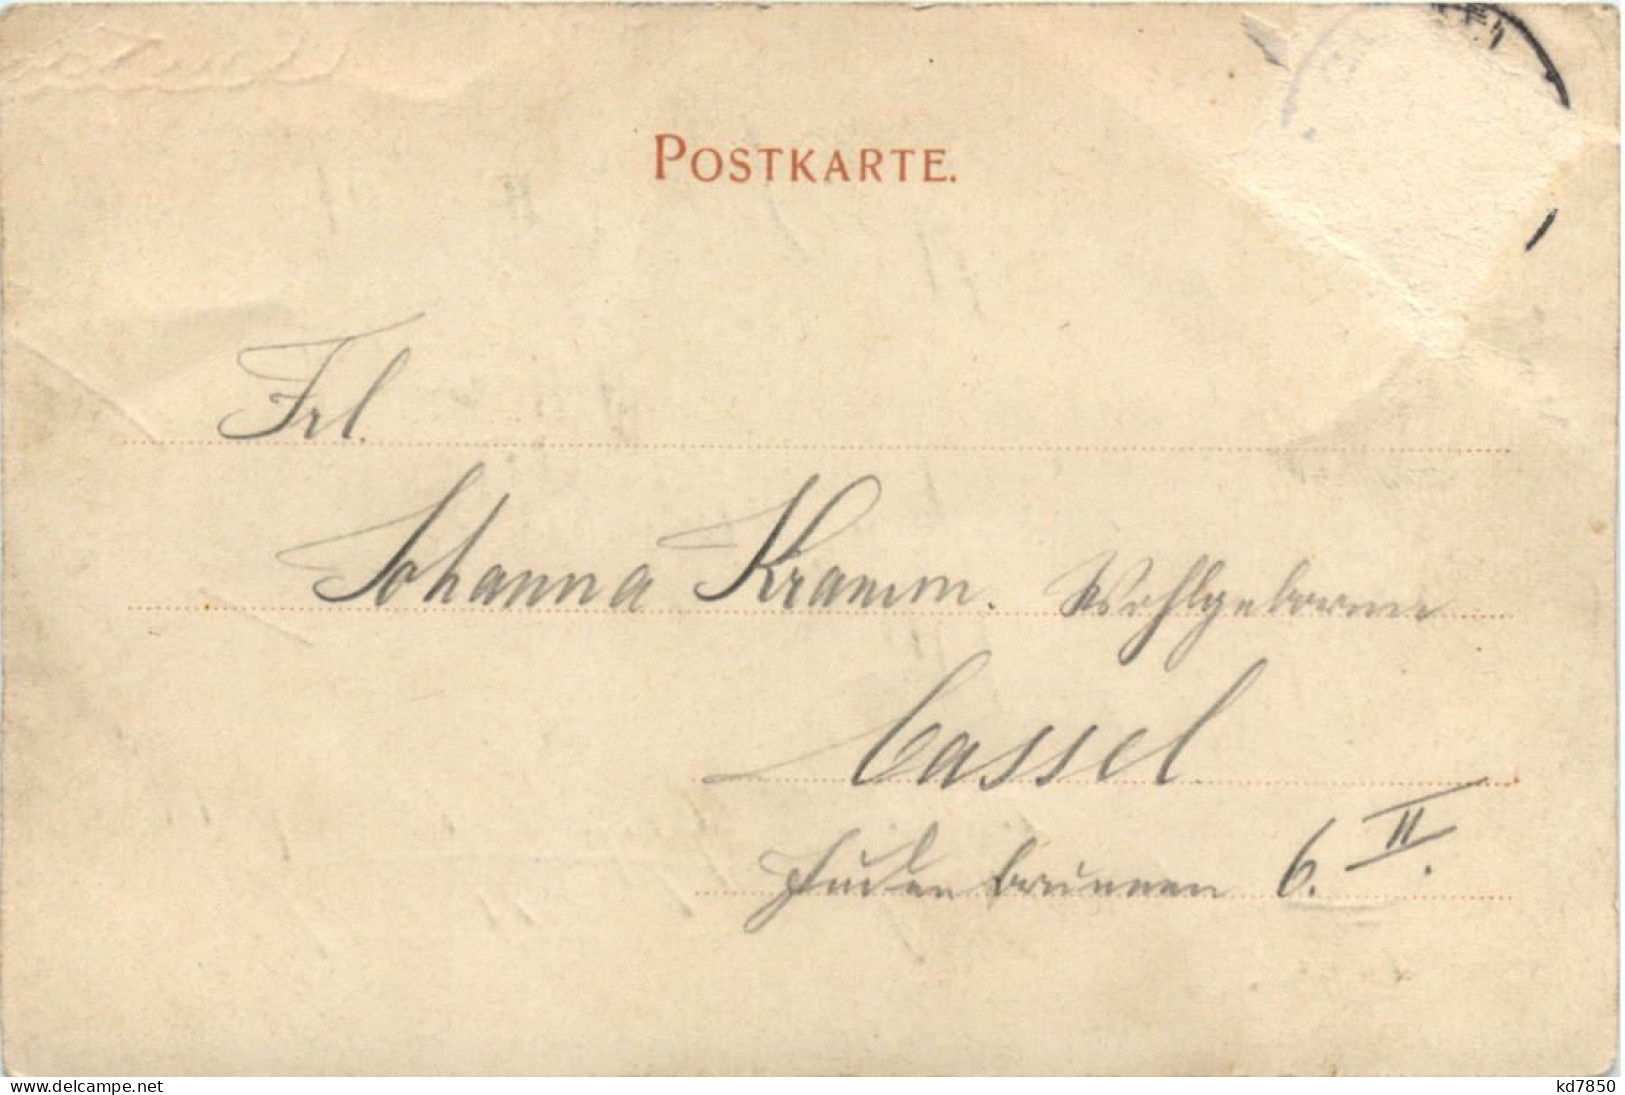 POSTKARTE.
Frl.
Johanna Kramm. Wohlgeboren
Cassel.
brunnen 6. II.
www.delcampe.net
kd7850